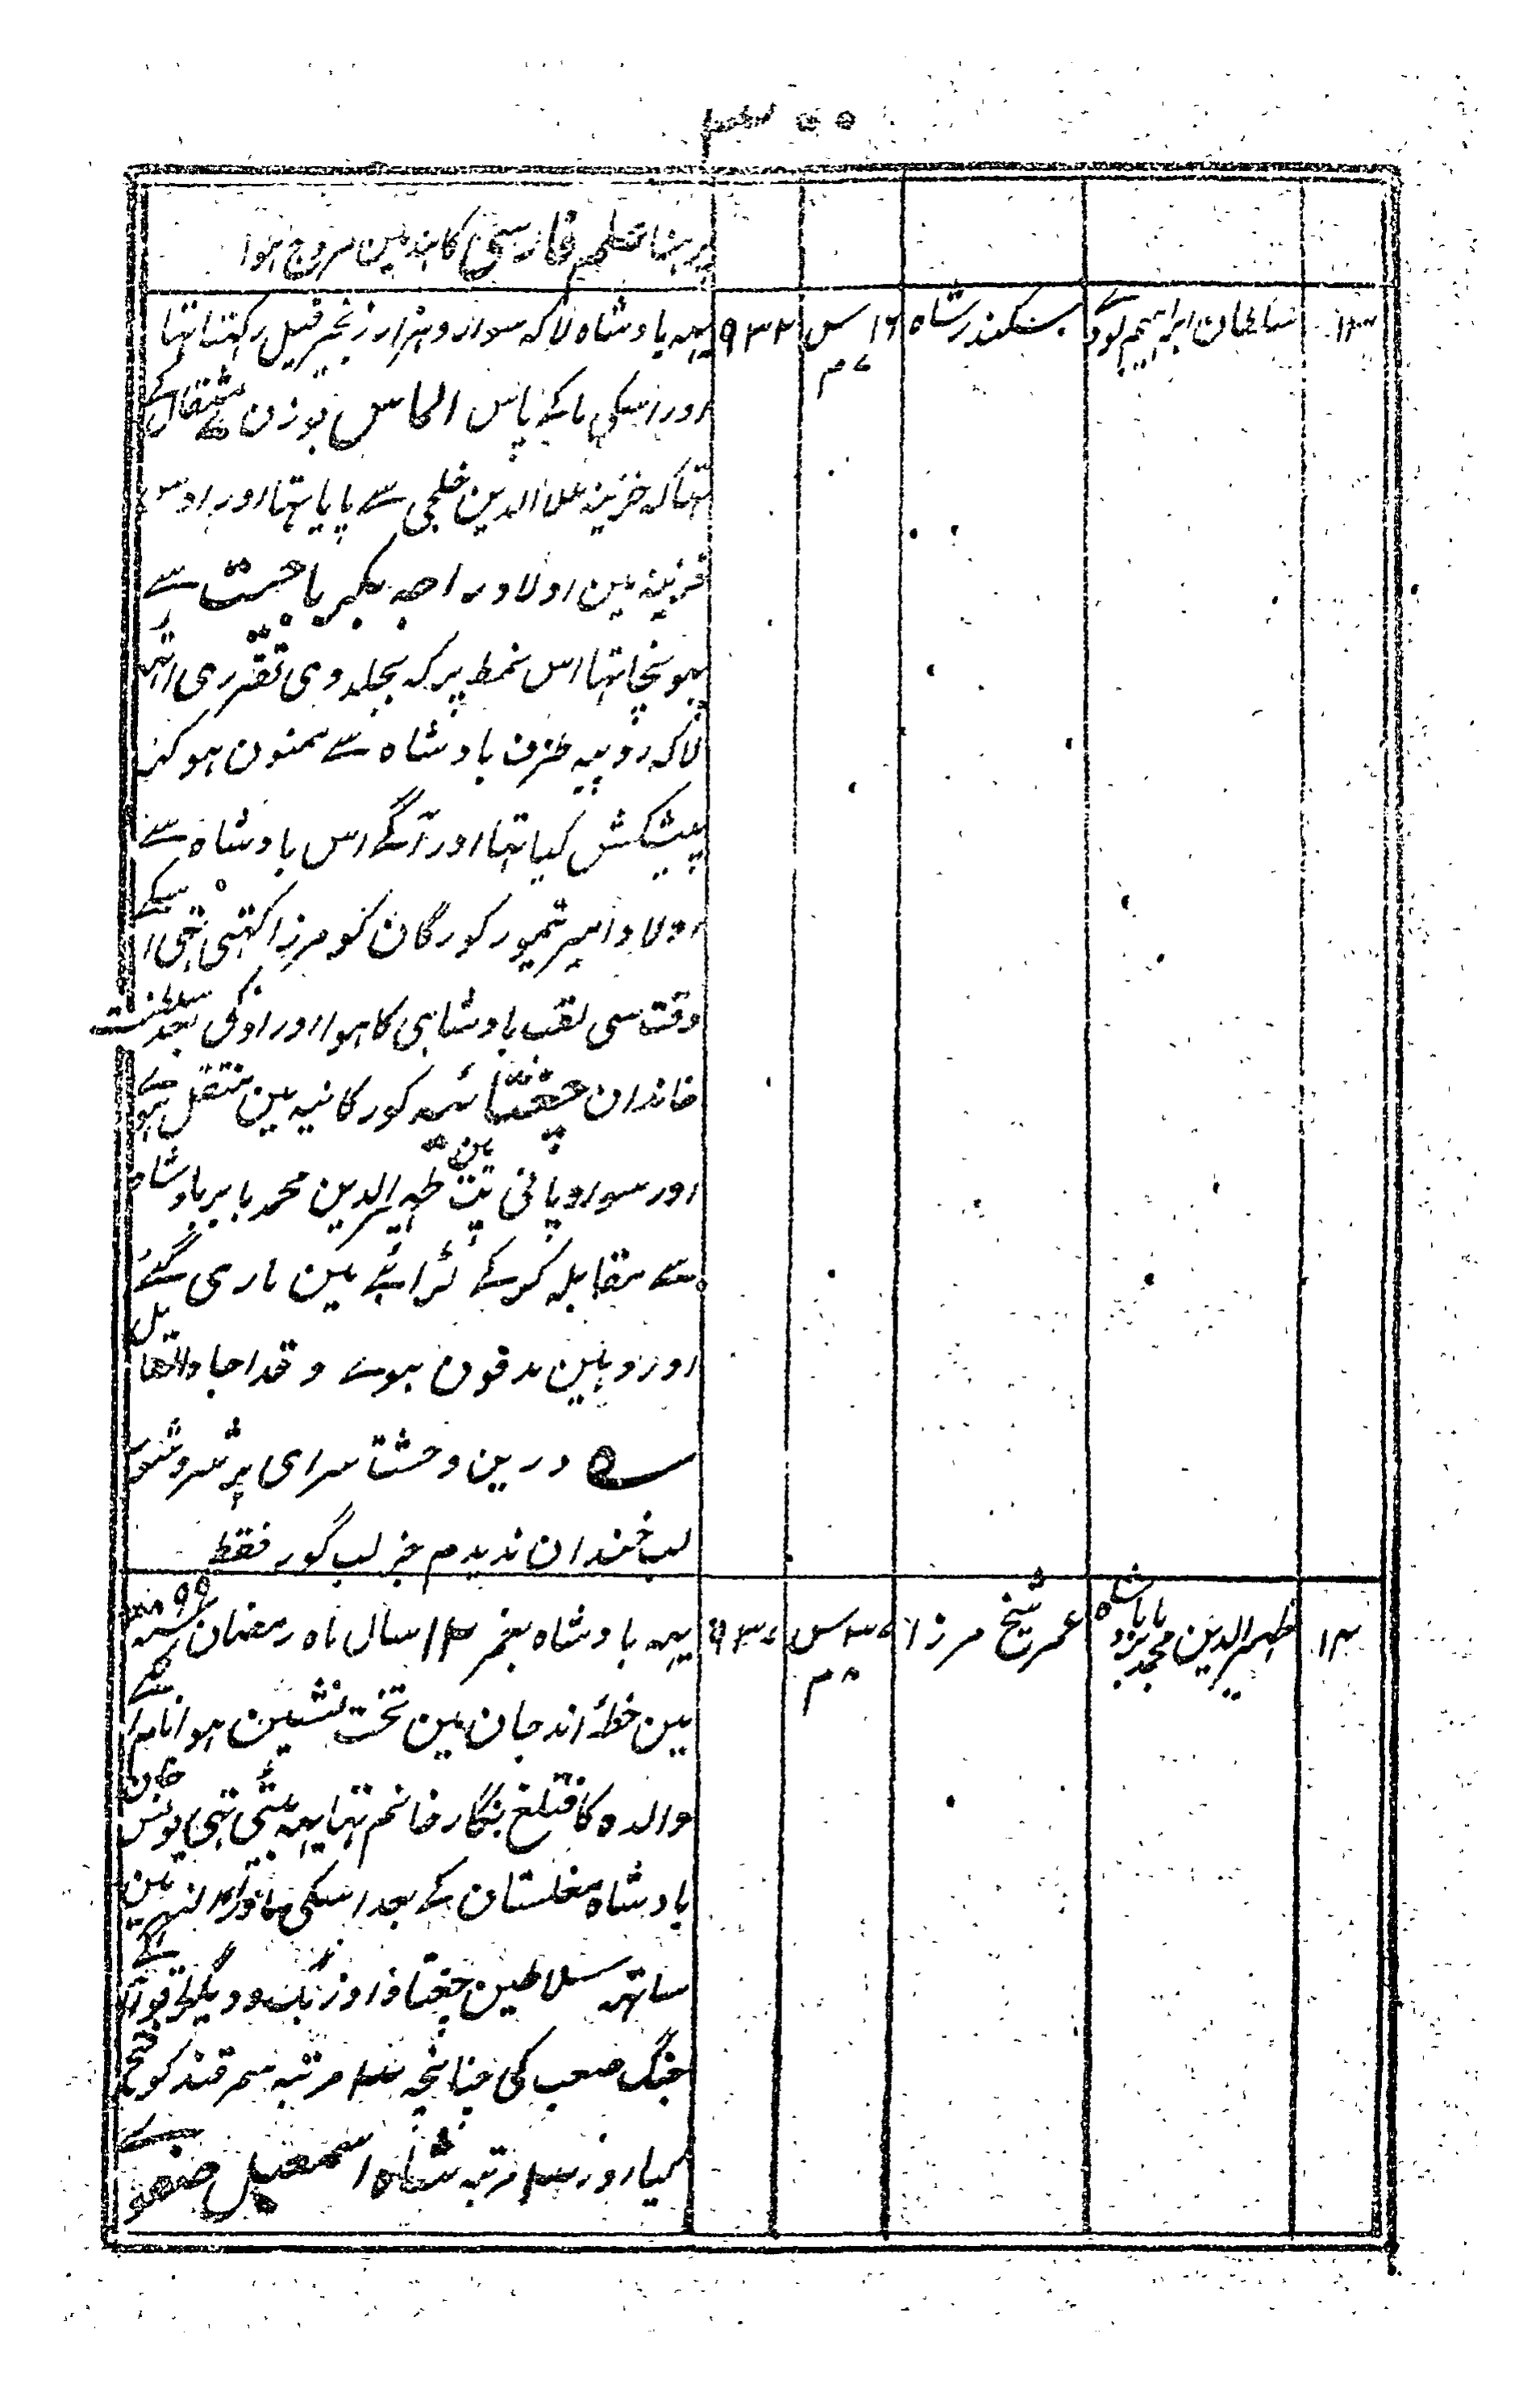 ۳۰۰
پڑہنا علم فارسی کا ہند مین مروج ہوا
۱۳ سلطان ابراہیم لودے سکندر شاہ ۱۶ س ۷ م ۹۳۲ یہہ بادشاہ لاکہ سوار و ہزار زنجیر فیل رکہتا تہا
اور اسکی ما کے پاس الماس بوزن مثقال کے
تہا کہ خزینہ علاالدین خلجی سے پایا تہا اور اوس
خزینہ مین اولاد راجہ بکبر ماجیت سے
پہونچا تہا اس نمط پر کہ بجلدوی تقرری
لاکہ روپیہ طرف بادشاہ سے ممنون ہو کر
پیشکش کیا تہا اور آگے اس بادشاہ سے
اولاد امیر تیمور کورگان کو مرزا کہتی تہی اسکے
وقت سی لقب بادشاہی کا ہوا اور اوکی بعد سلطنت
خاندان چغتائیہ کورکانیہ مین منتقل ہوے
اور سواد پانی پت مین ظہیرالدین محمد بابر بادشاہ
سے مقابلہ کرکے لڑائے مین ماری گئے
اور وہین مدفون ہوے
ے درین وحشت سرای پر شر و شور
لب خندان ندیدم جز لب گور فقط
۱۴ ظہیرالدین محمد بابر بادشاہ عمر شیخ مرزا ۳۷ س ۸ م ۹۳۷ یہہ بادشاہ بعمر ۱۲ سال ماہ رمضان سنہ ۸۹۹
مین خطۂ اندجان مین تخت نشین ہوا نام اسکے
والدہ کا قتلغ نگار خانم تہا یہہ بیٹی تہی یونس خان
بادشاہ مغلستان کے بعد اسکی ماوراءالنہر مین
ساتہہ سلاطین چغتا و اوزبک و دیگر اقوام کے
جنگ صعب کی چنانچہ ۳ مرتبہ سمرقند کو فتح
کیا اور ۳ مرتبہ شاہ اسمعیل صفوے